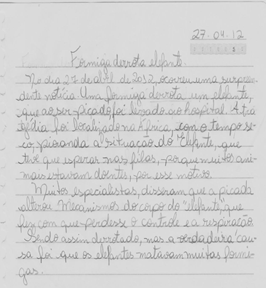 27.04.12
Formiga derrota elefante.
No dia 27 de abril de 2012, ocorreu uma surpreen-
dente notícia. Uma formiga derrota um elefante,
que ao ser picado foi levado ao hospital. A tra
gédia foi localizada na África, com o tempo se
co, piorando a situação do elefante, que
teve que esperar nas filas, porque muitos ani-
mais estavam doente, por esse motivo.
Muitos especialistas, disseram que a picada
alterou Mecanismos do corpo do "elefante", que
fez com que perdesse o controle e a respiração.
Sendo assim derrotado, mas a verdadeira cau
sa foi que os elefantes matavam muitas formi-
gas.